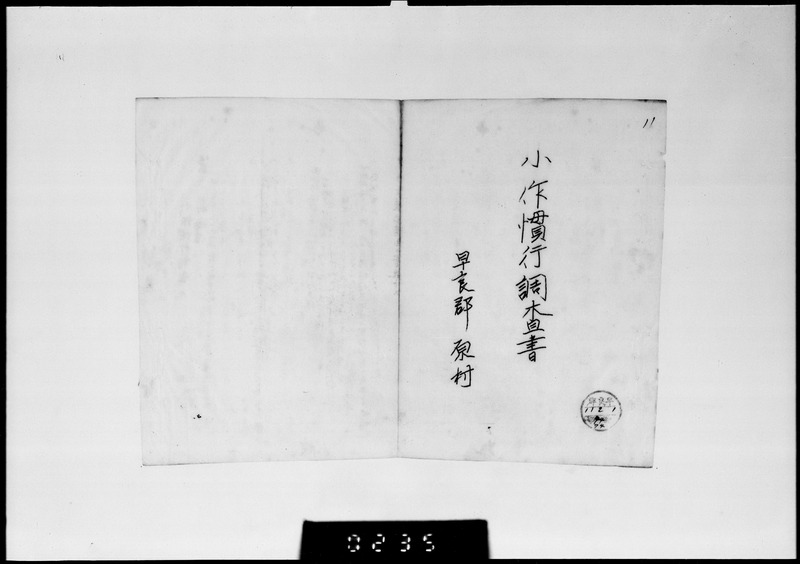 11
小作慣行調査書
早良郡 原村
11 2 1
0235